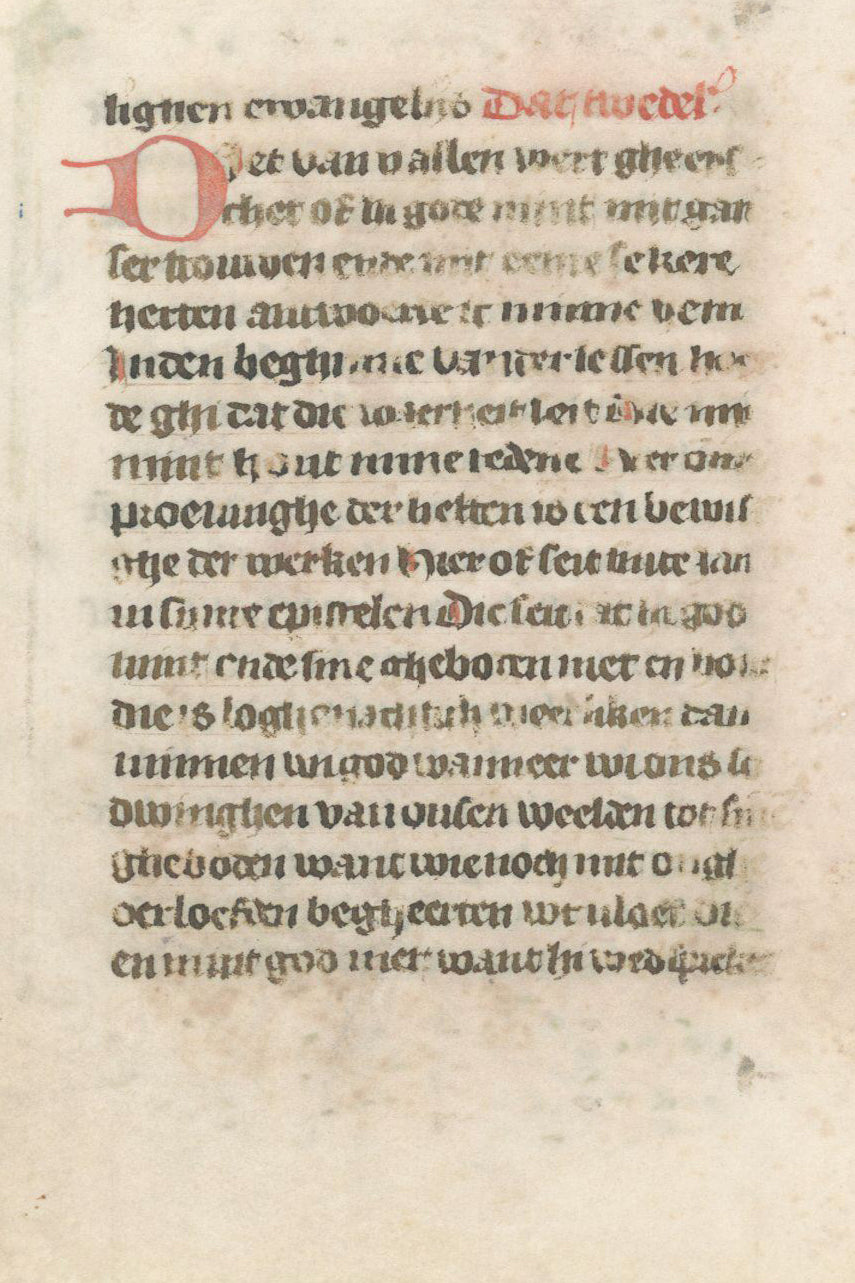 lighen ewangelijs Dat tweedel
Diet van v allen wert gheeis
chet of hi gode mint mit gan
ser trouwen ende mit eenre sekere
herten antwoerde ic minne hem
Inden beghinne van der lessen hoer
de ghi dat die waerheit seit Die mi
mint hout mine redene Hier om
proevinghe der lieften is een bewis
ghe der werken Hier of seit sinte ian
in sijnre epistelen Die seit dat hi god
mint ende sine gheboden niet en hout
die is loghenachtich Waerliken dan
minnen wi god wanneer wi ons
dwinghen van onsen weelden tot sine
gheboden want wie noch mit ongh
oerlocfden begheerten
en mint god niet want hi